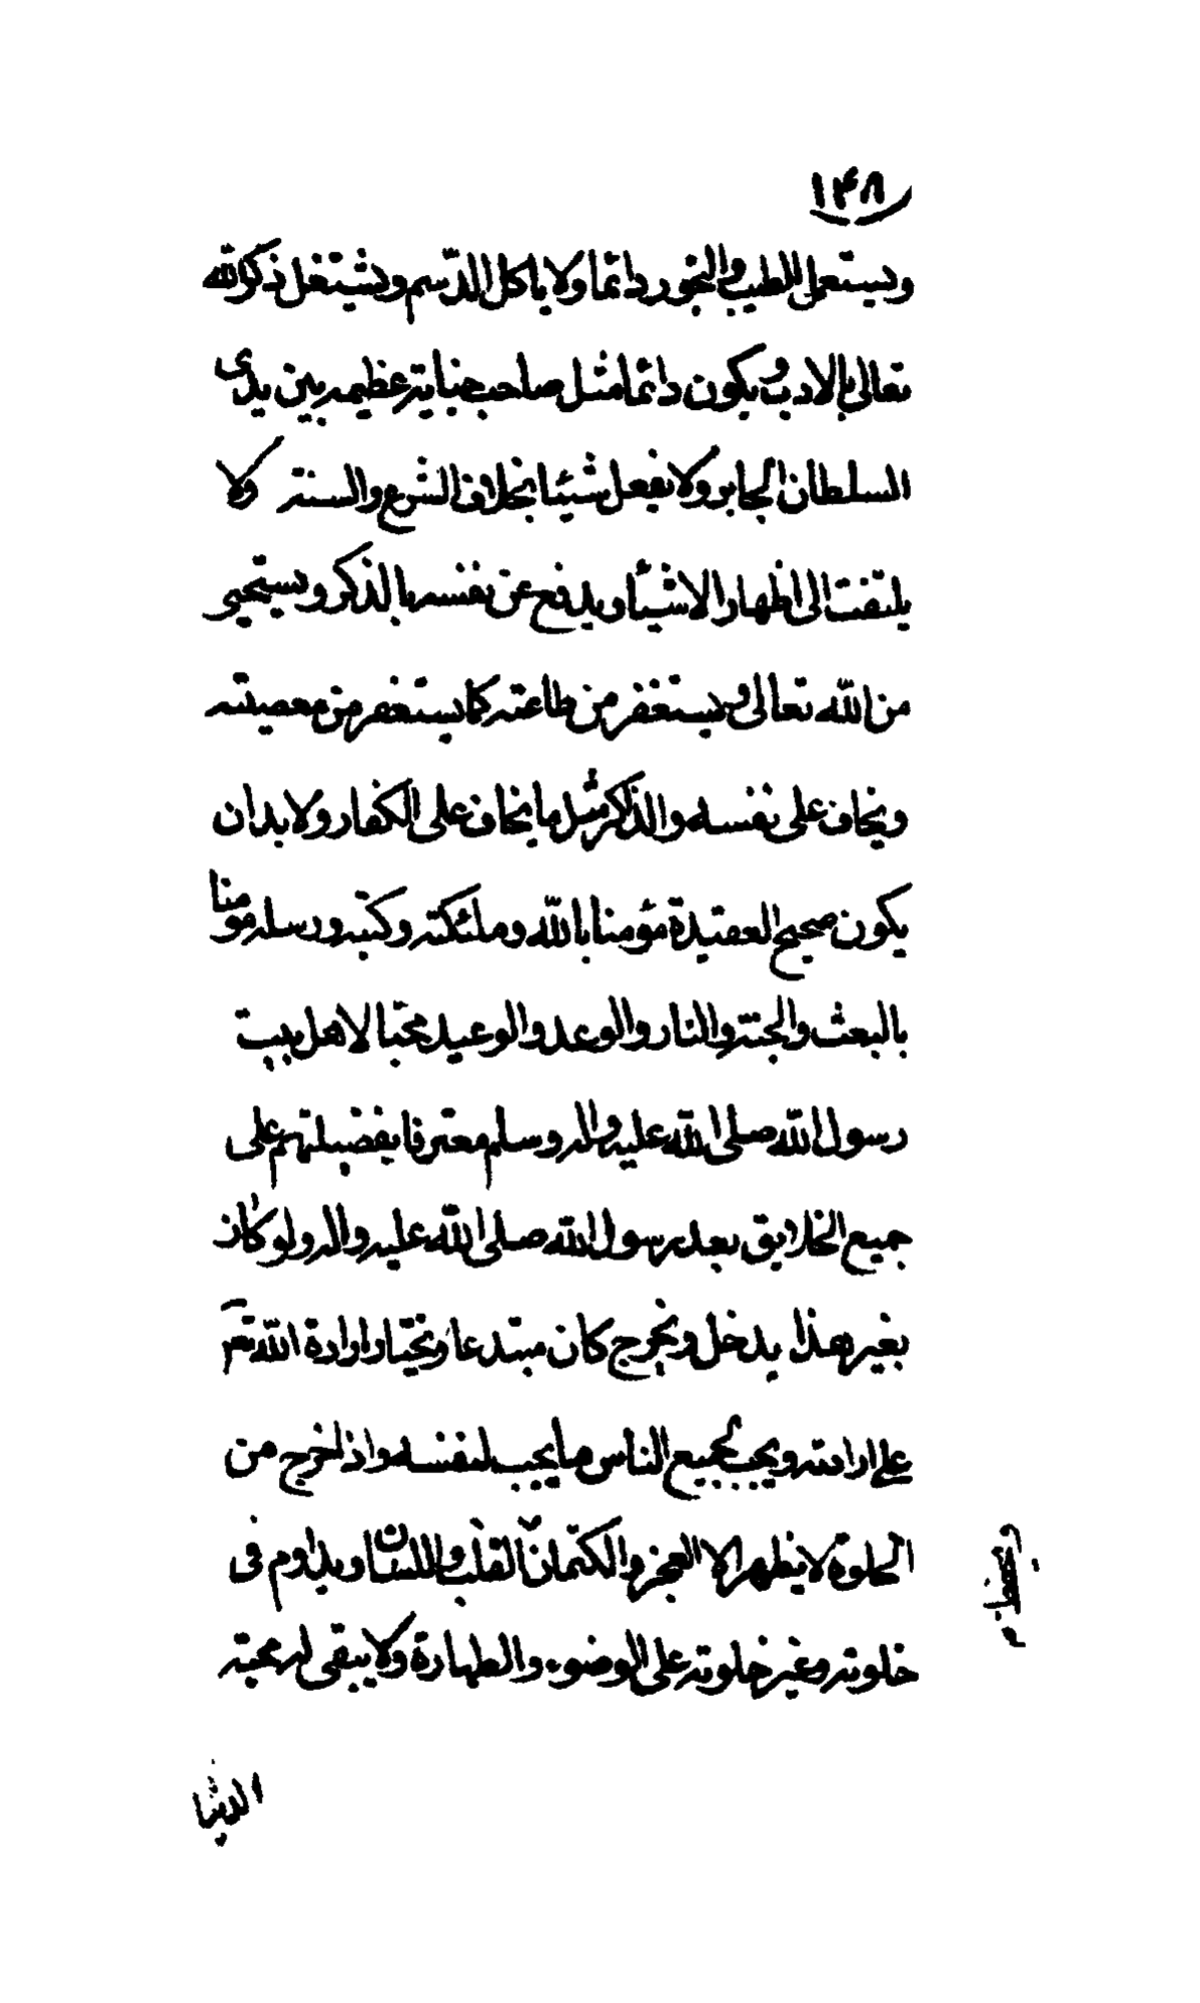 ١٤٨
ويستعمل الطيب والبخور دائما ولا ياكل الدسم ويشتغل ذكر الله
تعالى بالادب ويكون دائما مثل صاحب جناية عظيمه بين يدى
السلطان الجابر ولا يفعل شيئا بخلاف الشرع والسنة ولا
يلتفت الى اظهار الاشياء ويدفع عن نفسه بالذكر ويستحيى
من الله تعالى ويستغفر من طاعته كما يستغفر من معصيته
ويخاف على نفسه والذاكر مثل ما يخاف على الكفار ولا بد ان
يكون صحيح العقيدة مؤمنا بالله وملئكته وكتبه ورسله مومنا
بالبعث والجنة والنار والوعد والوعيد محبا لاهل بيت
رسول الله صلى الله عليه واله وسلم معترفا بفضيلتهم على
جميع الخلايق بعد رسول الله صلى الله عليه واله ولو كان
بغير هذا يدخل ويخرج كان مبتدعا ويختار ارادة الله تعم
على ارادته ويحب لجميع الناس ما يحب لنفسه واذا خرج من
الخلوة لا يظهر الا العجز والكتمان القلب واللسان ويداوم فى
خلوته وغير خلوته على الوضوء والطهارة ولا يبقى له محبة
الدنيا